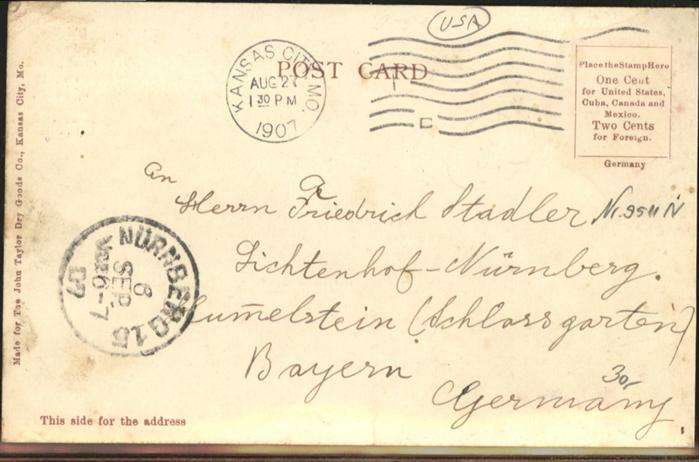 USA
POST CARD
KANSAS CITY, MO.
AUG 2
1 30 PM
1907
Place the Stamp Here
One Cent
for United States,
Cuba, Canada and
Mexico.
Two Cents
for Foreign.
Germany
Made for The John Taylor Dry Goods Co., Kansas City, Mo.
An
Herrn Friedrich Stadler
Lichtenhof-Nürnberg.
(Schlossgarten)
Bayern
Germany
30
NÜRNBERG 15
6
SEP.
6-7
07
This side for the address